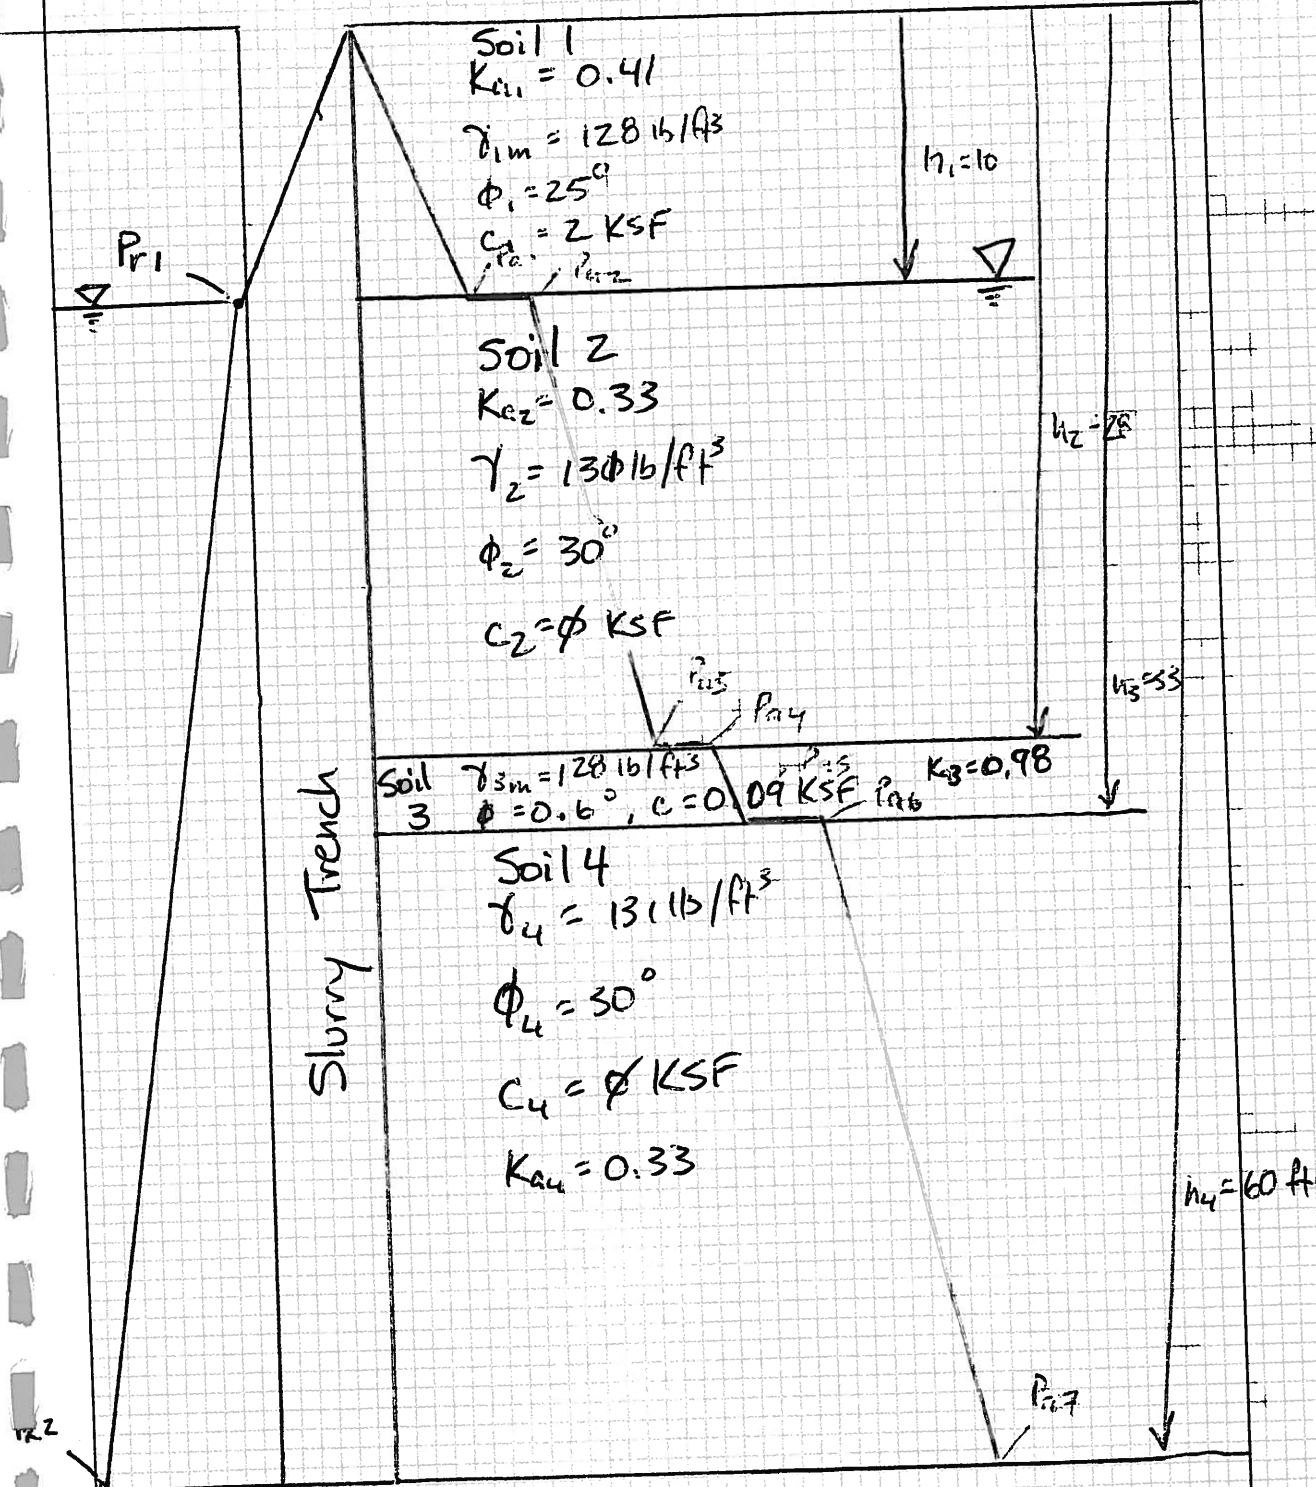 Soil 1
Ka₁ = 0.41
γ₁m = 128 lb/ft³
ϕ₁ = 25°
c₁ = 2 KSF
h₁=10
Pr₁
Pa2
Soil 2
Ka₂ = 0.33
γ₂ = 130 lb/ft³
ϕ₂ = 30°
c₂ = ∅ KSF
h₂ =
h₃=33
Pa4
Soil 3
γ₃m = 128 lb/ft³
K₃=0.98
ϕ = 0.6°, c = 0.09 KSF
Pa6
Slurry Trench
Soil 4
γ₄ = 131 lb/ft³
ϕ₄ = 30°
C₄ = ∅ KSF
Ka₄ = 0.33
h₄ = 60 ft
Pa7